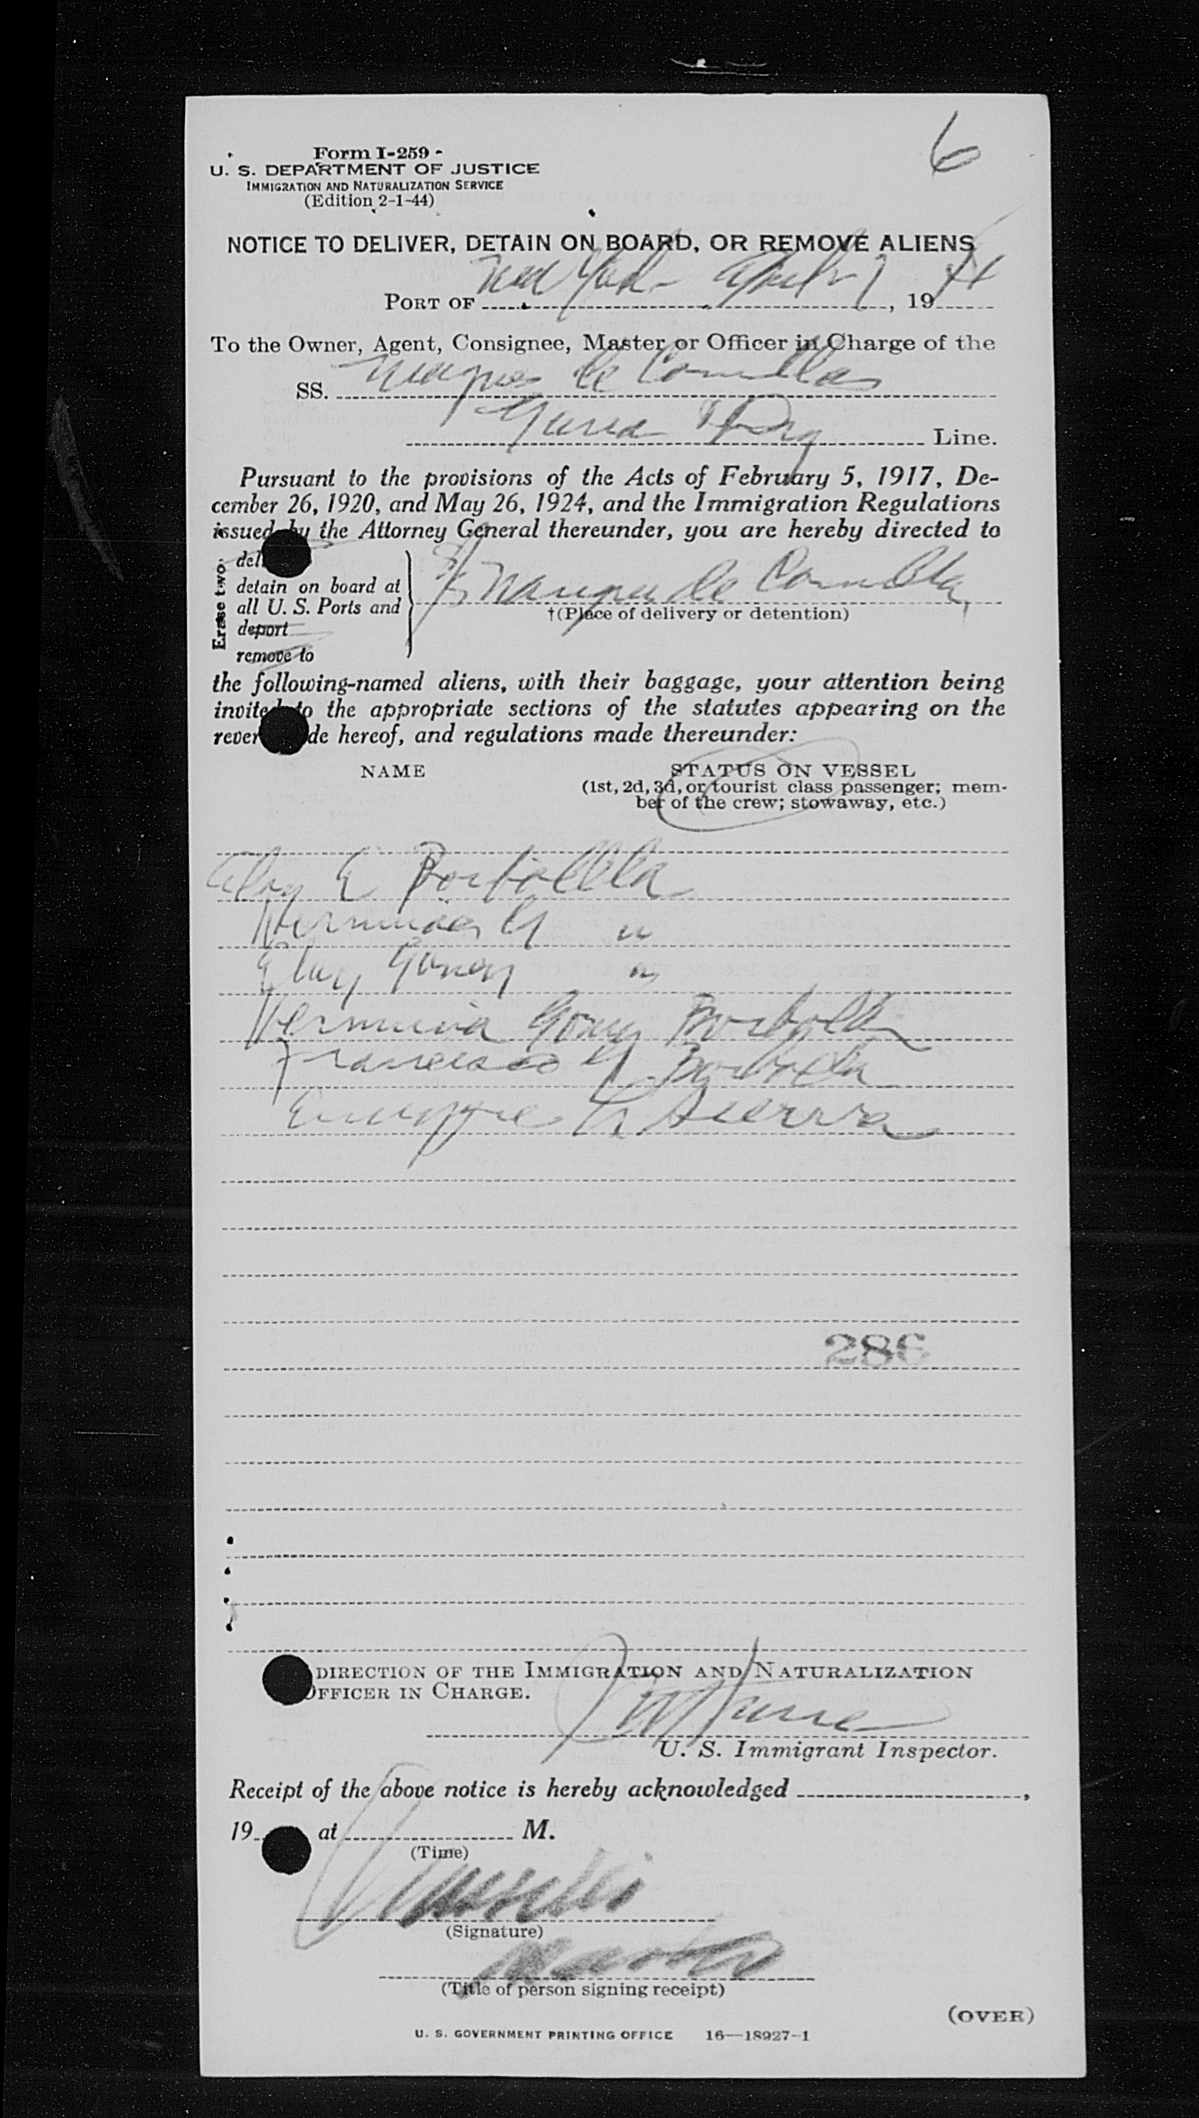 6
Form I-259
U. S. DEPARTMENT OF JUSTICE
IMMIGRATION AND NATURALIZATION SERVICE
(Edition 2-1-44)
NOTICE TO DELIVER, DETAIN ON BOARD, OR REMOVE ALIENS
PORT OF New York April 7, 19
To the Owner, Agent, Consignee, Master or Officer in Charge of the
SS. Marques de Comillas
Garcia & Line.
Pursuant to the provisions of the Acts of February 5, 1917, De-
cember 26, 1920, and May 26, 1924, and the Immigration Regulations
issued by the Attorney General thereunder, you are hereby directed to
Erase two:
del
detain on board at
all U. S. Ports and
deport
remove to
Marques de Comillas
†(Place of delivery or detention)
the following-named aliens, with their baggage, your attention being
invited to the appropriate sections of the statutes appearing on the
rever de hereof, and regulations made thereunder:
NAME
STATUS ON VESSEL
(1st, 2d, 3d, or tourist class passenger; mem-
ber of the crew; stowaway, etc.)
Eloy E Borbolla
Herminia G "
Eloy Gomez "
Herminia Gomez Borbolla
Francisco G. Borbolla
Enrique G Sierra
286
DIRECTION OF THE IMMIGRATION AND NATURALIZATION
OFFICER IN CHARGE.
U. S. Immigrant Inspector.
Receipt of the above notice is hereby acknowledged ,
19 at M.
(Time)
(Signature)
Master
(Title of person signing receipt)
(OVER)
U. S. GOVERNMENT PRINTING OFFICE 16—18927-1